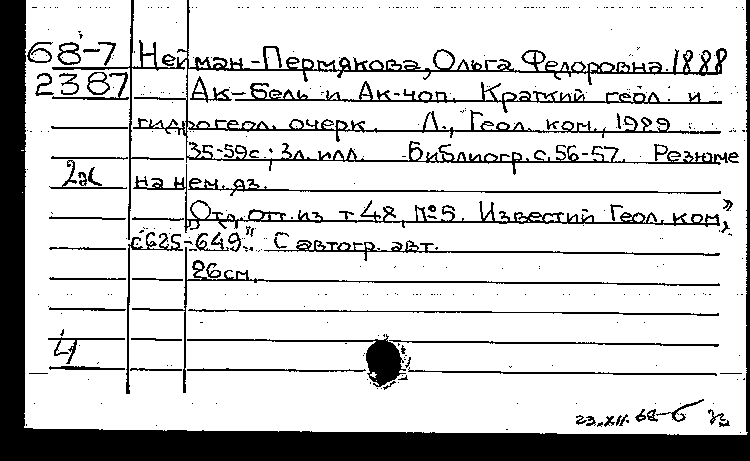 68-7 Нейман-Пермякова, Ольга Федоровна. 1888
2387 Ак-бель и Ак-чоп. Краткий геол. и
гидрогеол. очерк. Л., Геол. ком., 1929
35-59с; 3л. илл. Библиогр. с. 56-57. Резюме
2ак на нем. яз.
„Отд. отт. из т 48, №5. Известий Геол. ком,"
с625-649". С автогр. авт.
26см.
4
23.XII.68-б